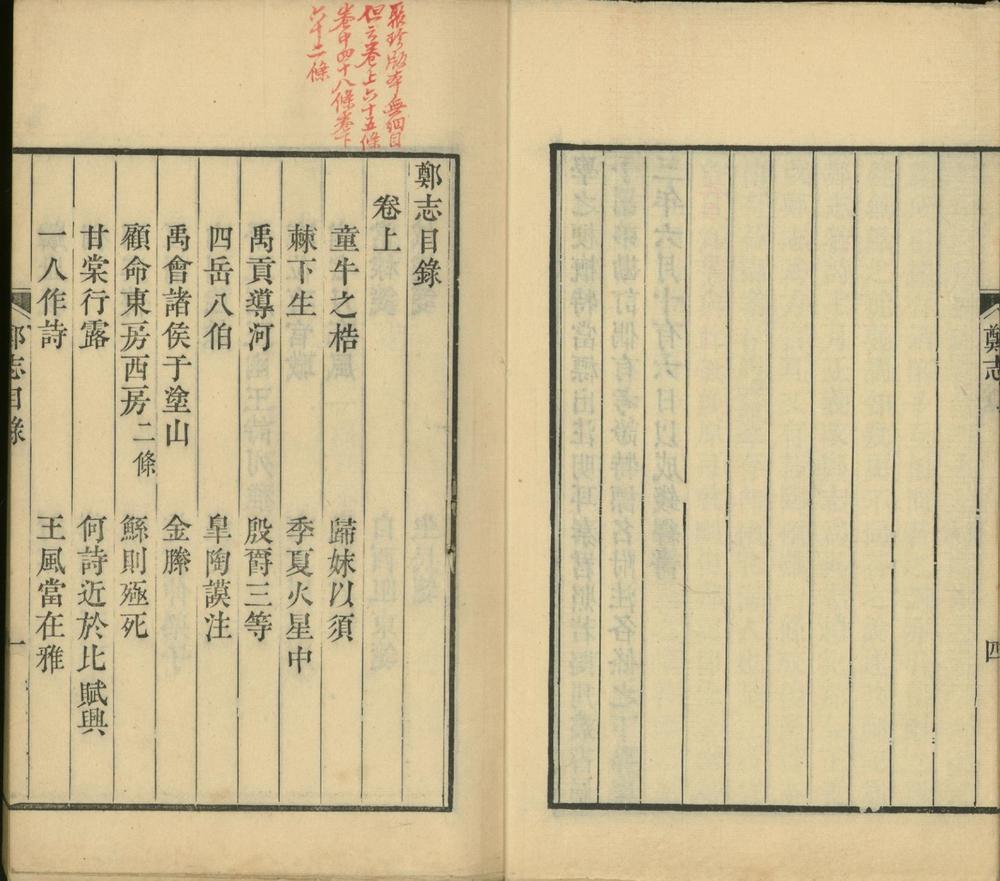 聚珍版本無細目
但云卷上六十五條
卷中四十八條卷下
六十二條
鄭志目錄
卷上
童牛之梏 歸妹以須
棘下生 季夏火星中
禹貢導河 殷爵三等
四岳八伯 皐陶謨注
禹會諸侯于塗山 金縢
顧命東房西房二條 鯀則殛死
甘棠行露 何詩近於比賦興
一人作詩 王風當在雅
鄭志目錄 一
鄭志 四